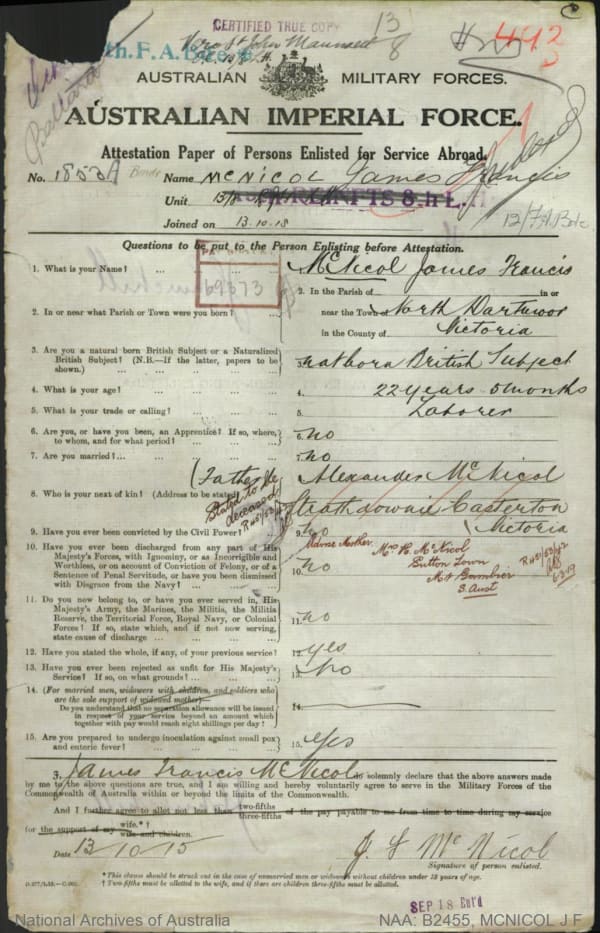 CERTIFIED TRUE COPY
13
8
442
th. F. A. B
AUSTRALIAN MILITARY FORCES.
AUSTRALIAN IMPERIAL FORCE.
Attestation Paper of Persons Enlisted for Service Abroad.
No. 1853A Name McNICOL James Francis
Unit 8th L.H.
Joined on 13-10-15
Questions to be put to the Person Enlisting before Attestation.
69573
1. What is your Name? McNicol James Francis
2. In or near what Parish or Town were you born?
2. In the Parish of in or
near the Town of North Dartmoor
in the County of Victoria
3. Are you a natural born British Subject or a Naturalized
British Subject? (N.B.—If the latter, papers to be
shown.)
3. natborn British Subject
4. What is your age? 4. 22 years 5 months
5. What is your trade or calling? 5. Laborer
6. Are you, or have you been, an Apprentice? If so, where,
to whom, and for what period? 6. no
7. Are you married? 7. no
(Father) Alexander McNicol
8. Who is your next of kin? (Address to be stated)
Stated to be deceased
Strathdownie Casterton
Victoria
9. Have you ever been convicted by the Civil Power? 9. no
Mrs H. McNicol
Sutton Town
Mt Gambier
S. Aust
6-2-19
10. Have you ever been discharged from any part of His
Majesty's Forces, with Ignominy, or as Incorrigible and
Worthless, or on account of Conviction of Felony, or of a
Sentence of Penal Servitude, or have you been dismissed
with Disgrace from the Navy? 10. no
11. Do you now belong to, or have you ever served in, His
Majesty's Army, the Marines, the Militia, the Militia
Reserve, the Territorial Force, Royal Navy, or Colonial
Forces? If so, state which, and if not now serving,
state cause of discharge 11. no
12. Have you stated the whole, if any, of your previous service? 12. yes
13. Have you ever been rejected as unfit for His Majesty's
Service? If so, on what grounds? 13. no
14. (For married men, widowers with children, and soldiers who
are the sole support of widowed mother)—
Do you understand that no separation allowance will be issued
in respect of your service beyond an amount which
together with pay would reach eight shillings per day? 14. —
15. Are you prepared to undergo inoculation against small pox
and enteric fever? 15. Yes
I, James Francis McNicol do solemnly declare that the above answers made
by me to the above questions are true, and I am willing and hereby voluntarily agree to serve in the Military Forces of the
Commonwealth of Australia within or beyond the limits of the Commonwealth.
And I further agree to allot not less than two-fifths three-fifths of the pay payable to me from time to time during my service
for the support of my wife.*† wife and children.
Date 13-10-15
J. F McNicol
Signature of person enlisted.
*This clause should be struck out in the case of unmarried men or widowers without children under 18 years of age.
† Two-fifths must be allotted to the wife, and if there are children three-fifths must be allotted.
SEP 18 Ent'd
National Archives of Australia
NAA: B2455, MCNICOL J F